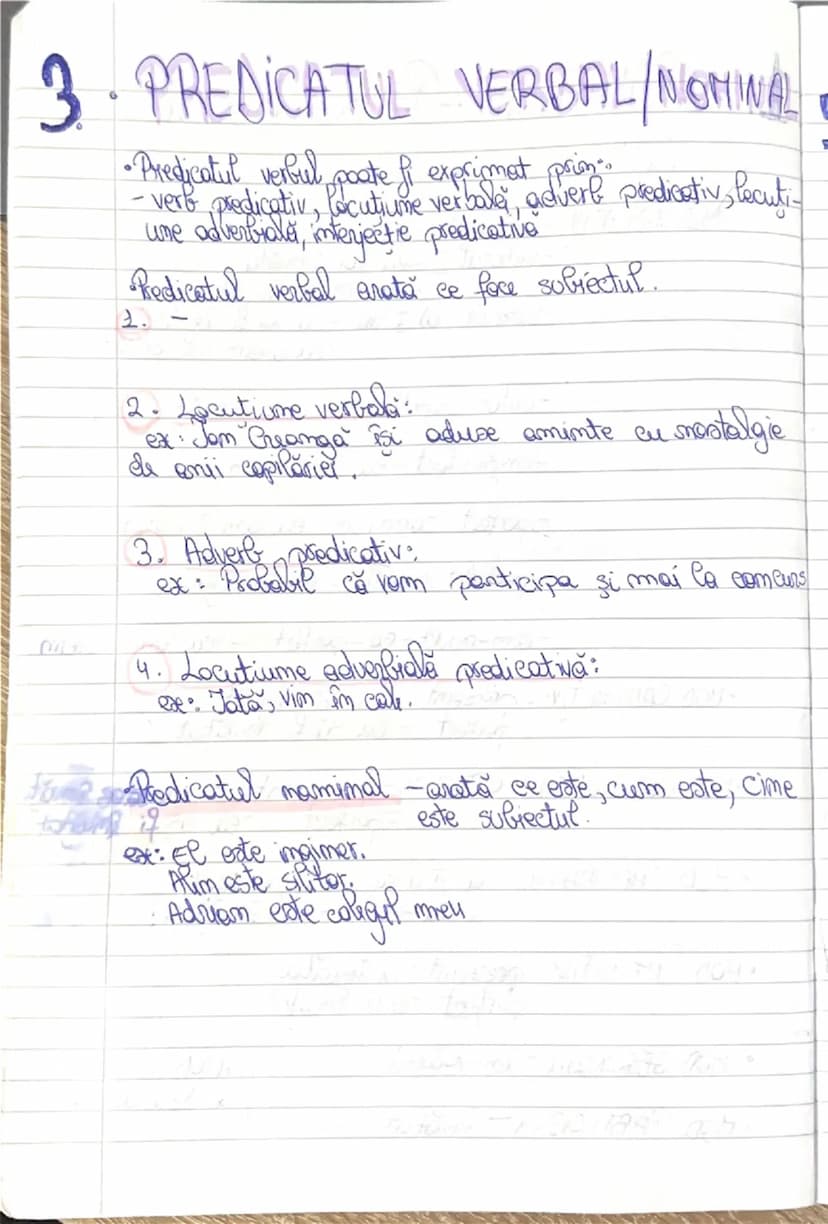 3. PREDICATUL VERBAL/NOMINAL
•Predicatul verbul poate fi exprimat prin:
- verb predicativ, locuțiune verbală, adverb predicativ, locuți-
une adverbială, interjecție predicativă
•Predicatul verbal arată ce face subiectul.
1. -
2. Locuțiune verbală:
ex: Ion Creangă își aduse aminte cu nostalgie
de anii copilăriei.
3. Adverb predicativ:
ex: Probabil că vom participa și mai la concurs
4. Locuțiune adverbială predicativă:
ex: Iată, vin în cale.
•Predicatul nominal - arată ce este, cum este, cine
este subiectul.
ex: El este inginer.
Alin este silitor.
Adrian este colegul meu